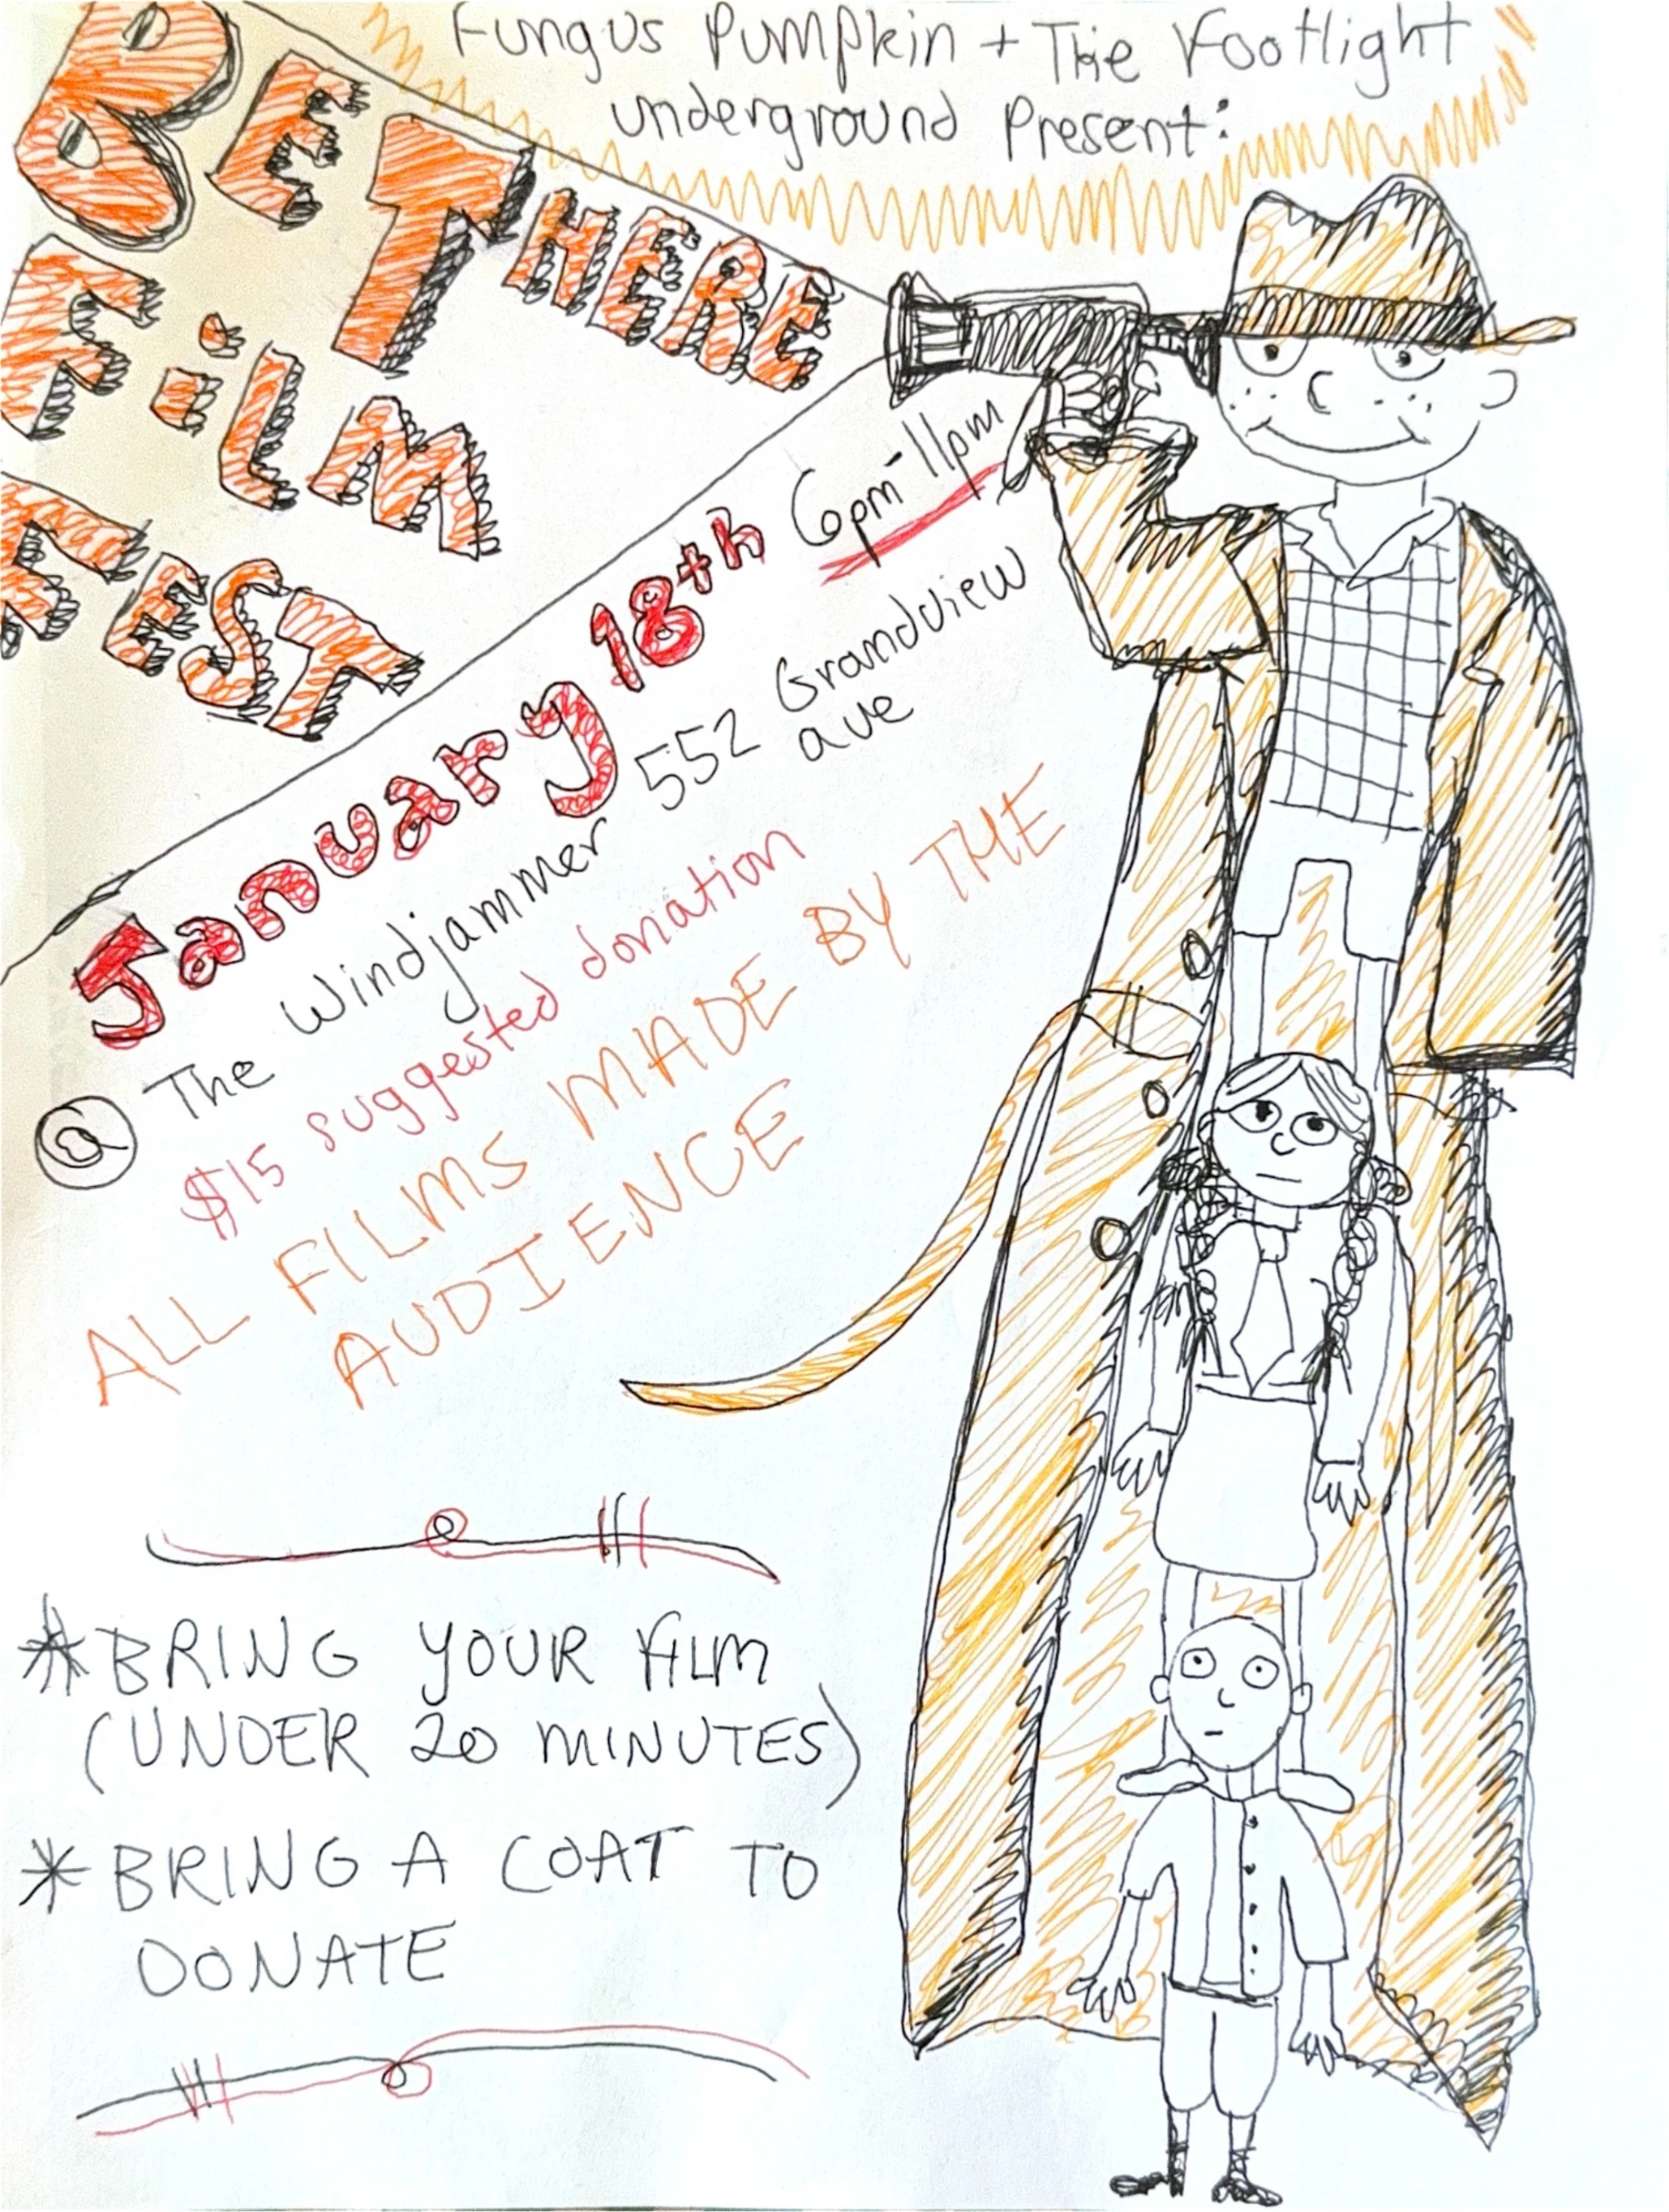 Fungus Pumpkin + The Footlight
underground Present:
BE THERE
FiLM
FEST
January 18th 6pm-11pm
@ The Windjammer 552 Grandview
ave
$15 suggested donation
ALL FILMS MADE BY THE
AUDIENCE
* BRING YOUR FILM
(UNDER 20 MINUTES)
* BRING A COAT TO
DONATE